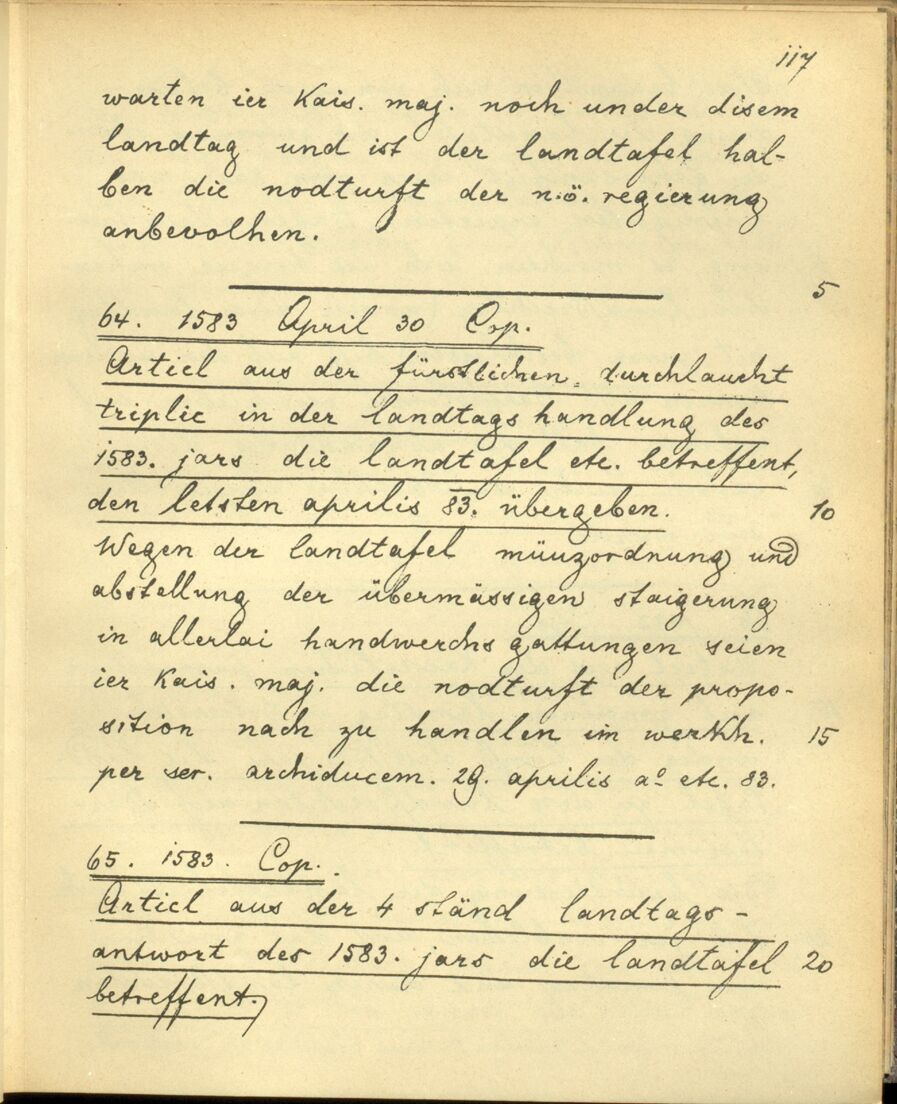 117
warten ier Kais. maj. noch under disem
landtag und ist der landtafel hal-
ben die nodturft der n.ö. regierung
anbevolhen.
5
64. 1583 April 30 Cop.
Articl aus der fürstlichen durchlaucht
triplic in der landtagshandlung des
1583. jars die landtafel etc. betreffent,
den letsten aprilis 83. übergeben. 10
Wegen der landtafel münzordnung und
abstellung der übermässigen staigerung
in allerlai handwerchs gattungen seien
ier Kais. maj. die nodturft der propo-
sition nach zu handlen im werkh. 15
per ser. archiducem. 29. aprilis aº etc. 83.
65. 1583. Cop.
Articl aus der 4 ständ landtags-
antwort des 1583. jars die landtafel 20
betreffent.